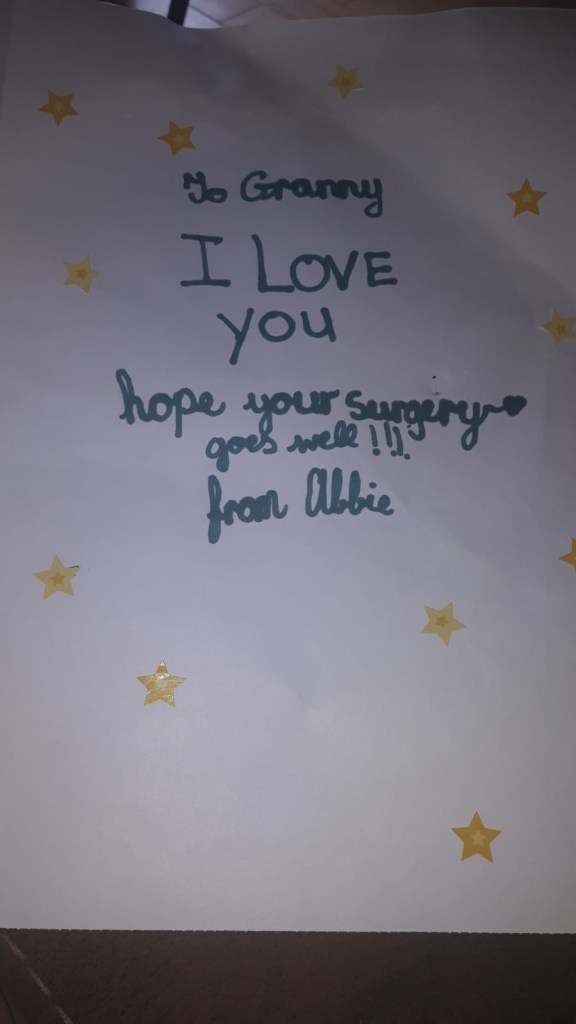 To Granny
I LOVE
YOU
hope your surgery
goes well!!!
from Abbie